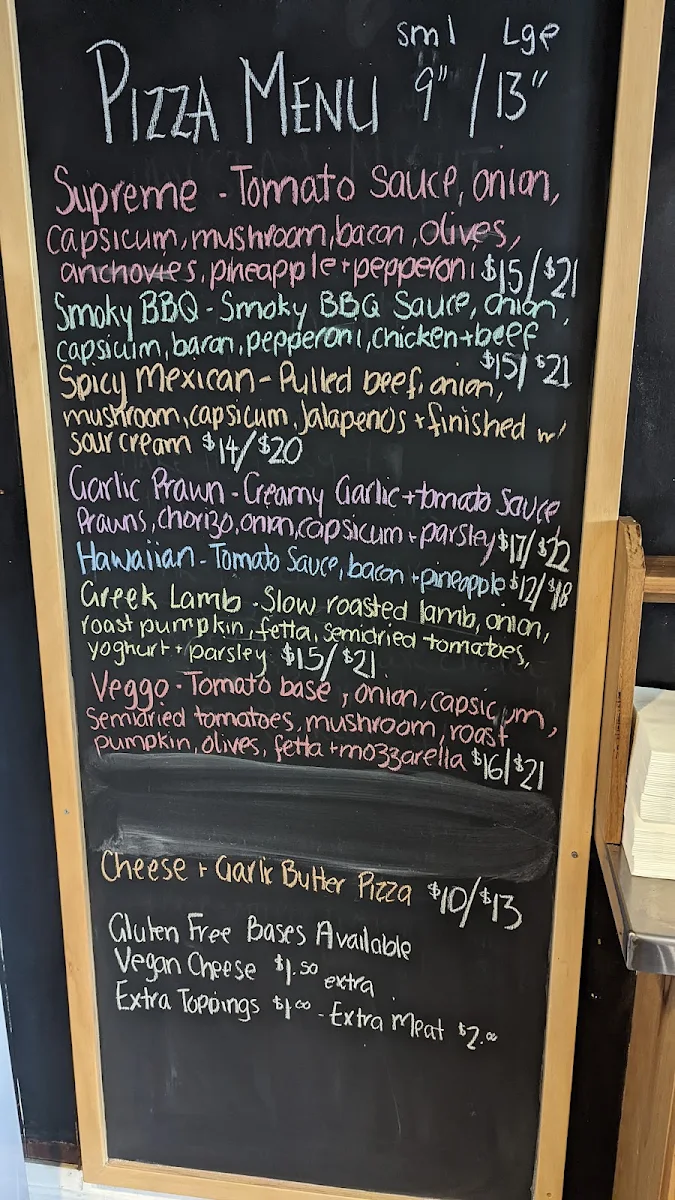 sml Lge
PIZZA MENU 9" / 13"
Supreme - Tomato Sauce, onion,
capsicum, mushroom, bacon, olives,
anchovies, pineapple + pepperoni $15/$21
Smoky BBQ - Smoky BBQ Sauce, onion,
capsicum, bacon, pepperoni, chicken + beef
$15/$21
Spicy Mexican - Pulled beef, onion,
mushroom, capsicum, Jalapenos + finished w/
sour cream $14/$20
Garlic Prawn - Creamy Garlic + tomato Sauce
Prawns, chorizo, onion, capsicum + parsley $17/$22
Hawaiian - Tomato Sauce, bacon + pineapple $12/$18
Greek Lamb - Slow roasted lamb, onion,
roast pumpkin, fetta, semidried tomatoes,
yoghurt + parsley $15/$21
Veggo - Tomato base, onion, capsicum,
Semidried tomatoes, mushroom, roast
pumpkin, olives, fetta + mozzarella $16/$21
Cheese + Garlic Butter Pizza $10/$13
Gluten Free Bases Available
Vegan Cheese $1.50 extra
Extra Toppings $1.00 - Extra Meat $2.00